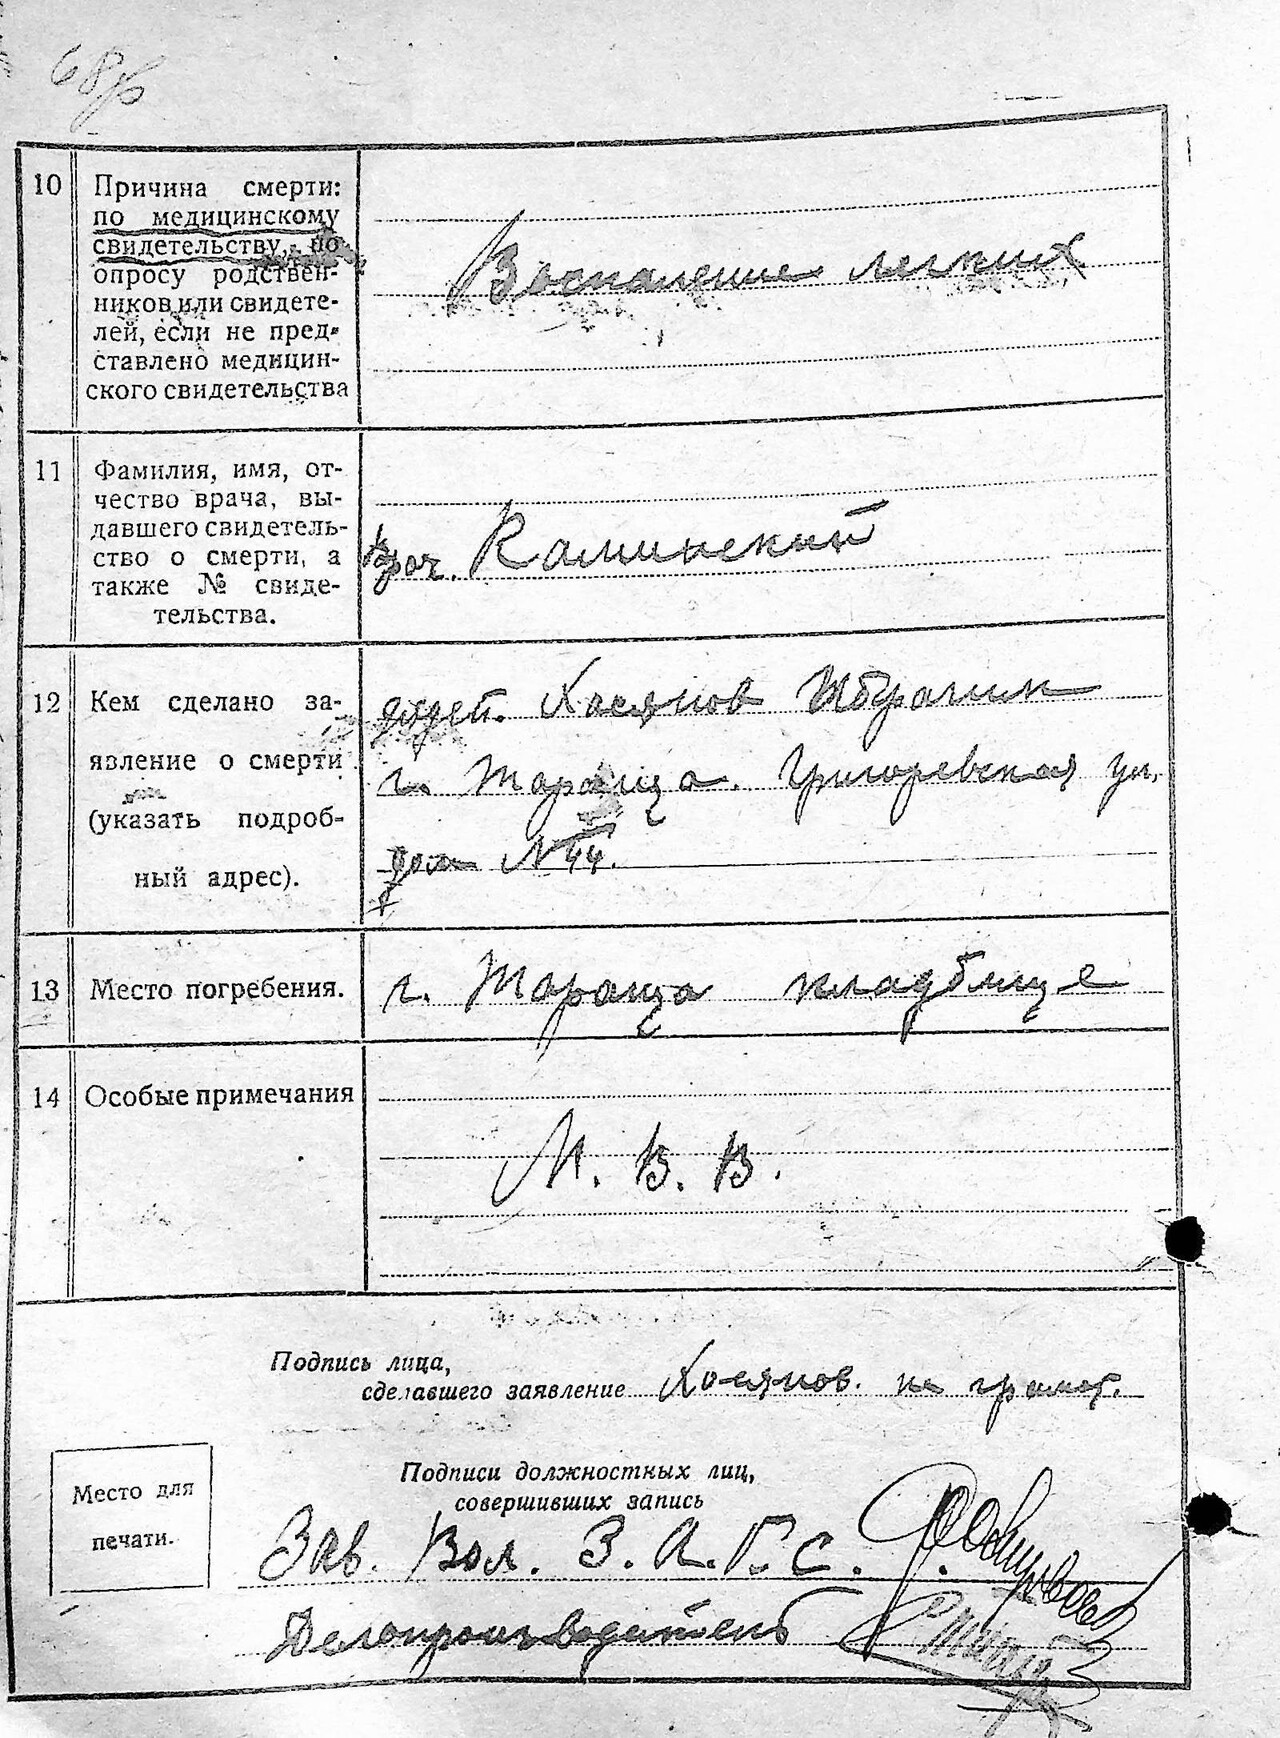 68
10 Причина смерти:
по медицинскому
свидетельству, по
опросу родствен-
ников или свидете-
лей, если не пред-
ставлено медицин-
ского свидетельства
Воспаление легких
11 Фамилия, имя, от-
чество врача, вы-
давшего свидетель-
ство о смерти, а
также № свиде-
тельства.
Врач. Каминский
12 Кем сделано за-
явление о смерти
(указать подроб-
ный адрес).
Хасянов Ибрагим
г. Тараща. Григорьевская ул.
дом № 44.
13 Место погребения.
г. Тараща кладбище
14 Особые примечания
М. В. В.
Подпись лица,
сделавшего заявление Хасянов. не грамот.
Подписи должностных лиц,
совершивших запись
Место для
печати.
Зав. Вол. З. А. Г. С.
Делопроизводитель